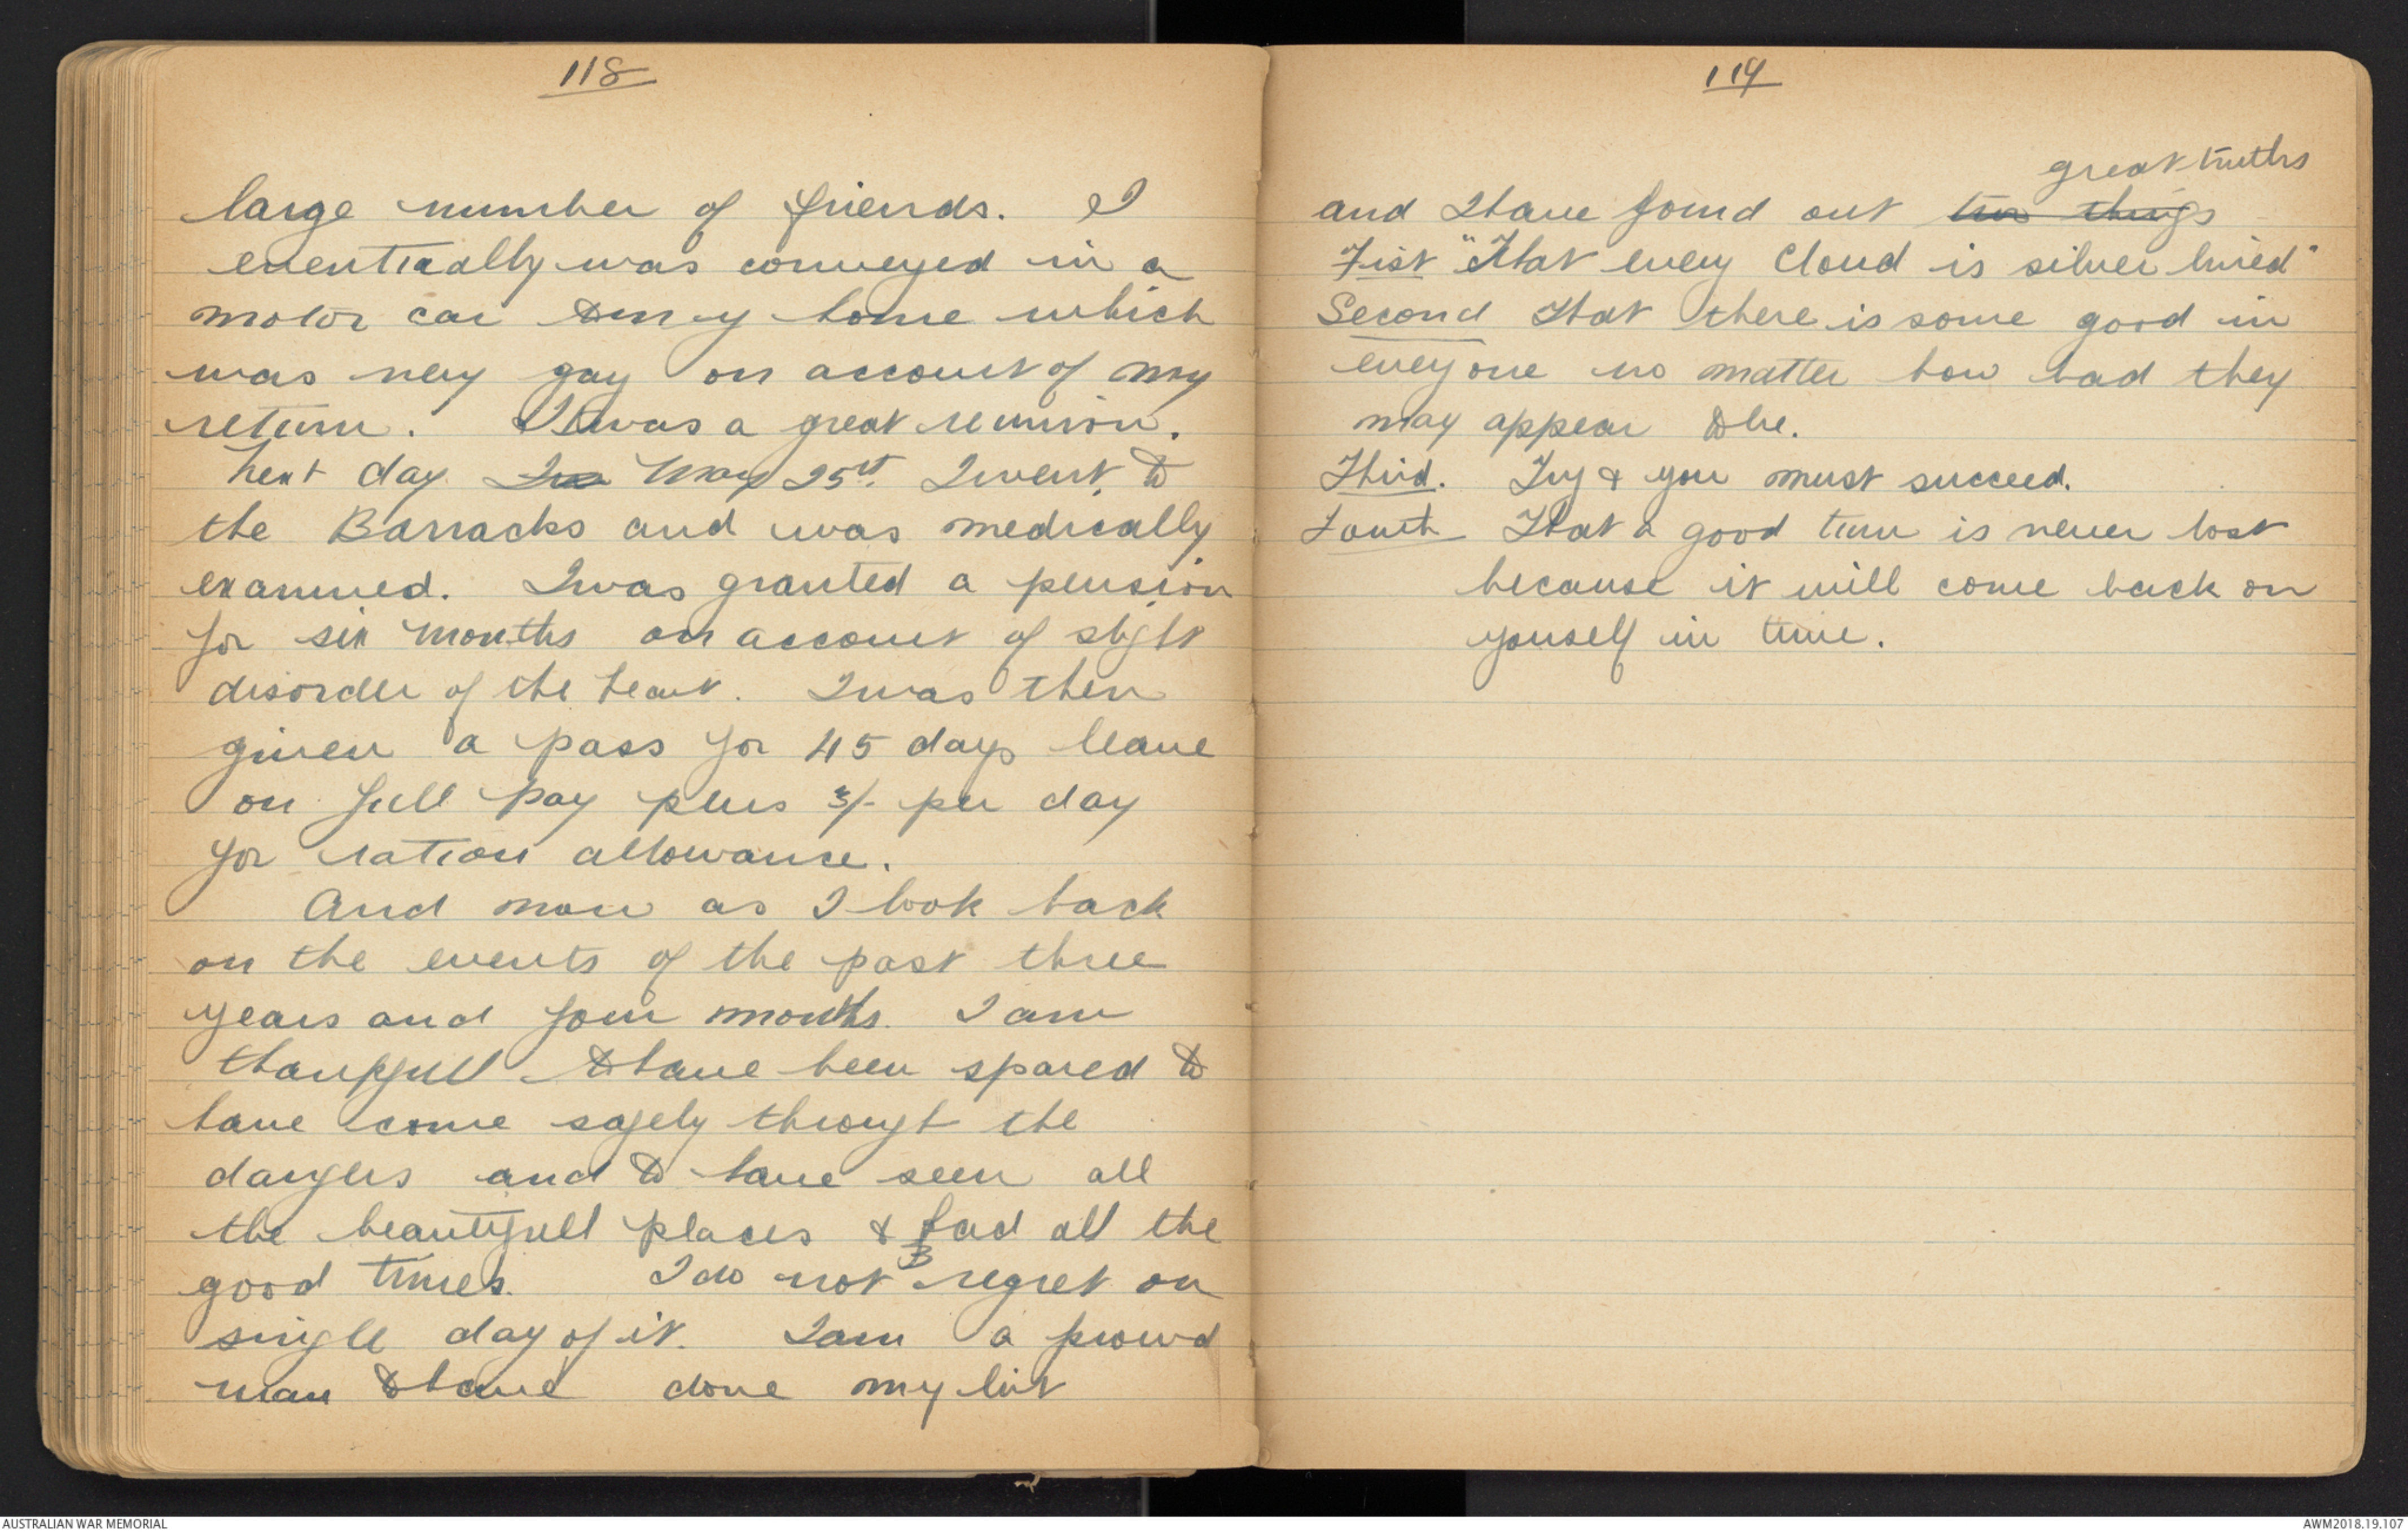 118
large number of friends. I
eventually was conveyed in a
motor car to my home which
was very gay on account of my
return. It was a great reunion.
Next day May 25th. I went to
the Barracks and was medically
examined. I was granted a pension
for six months on account of slight
disorder of the heart. I was then
given a pass for 45 days leave
on full pay plus 3/- per day
for ration allowance.
And now as I look back
on the events of the past three
years and four months. I am
thankfull to have been spared to
have come safely through the
dangers and to have seen all
the beautifull places & had all the
good times. I do not regret on
single day of it. I am a proud
man to have done my bit
119
great truths
and I have found out two things
First "That every Cloud is silver lined"
Second That there is some good in
everyone no matter how bad they
may appear to be.
Third. Try & you must succeed.
Fourth That a good turn is never lost
because it will come back on
yourself in time.
AUSTRALIAN WAR MEMORIAL
AWM2018.19.107